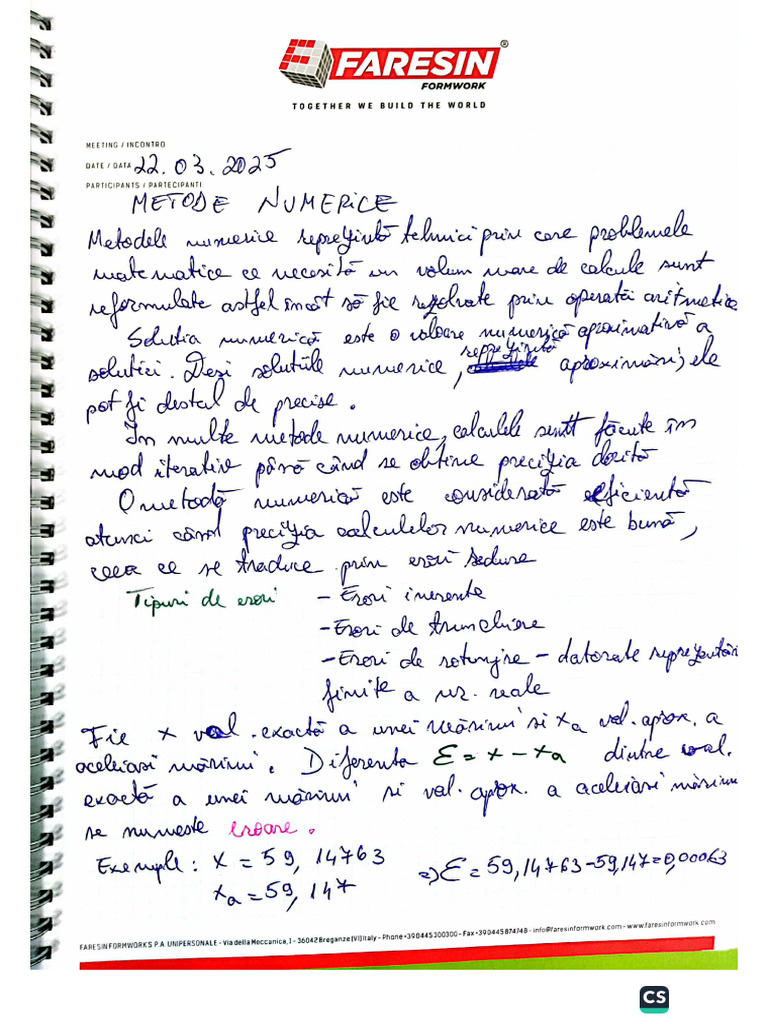 FARESIN®
FORMWORK
TOGETHER WE BUILD THE WORLD
MEETING / INCONTRO
DATE / DATA 22.03.2025
PARTICIPANTS / PARTECIPANTI
METODE NUMERICE
Metodele numerice reprezintă tehnici prin care problemele
matematice ce necesită un volum mare de calcule sunt
reformulate astfel încât să fie rezolvate prin operatii aritmetice
Solutia numerică este o valoare numerică aproximativă a
solutiei. Desi solutiile numerice, reprezintă aproximări, ele
pot fi destul de precise.
În multe metode numerice, calculele sunt făcute în
mod iterativ până când se obtine precizia dorită
O metodă numerică este considerată eficientă
atunci când precizia calculelor numerice este bună,
ceea ce se traduce prin erori reduse
Tipuri de erori - Erori inerente
- Erori de trunchiere
- Erori de rotunjire - datorate reprezentării
finite a nr. reale
Fie x val. exactă a unei mărimi si xa val. aprox. a
aceleiasi mărimi. Diferenta Ɛ = x - xa dintre val.
exactă a unei mărimi si val. aprox. a aceleiasi mărimi
se numeste eroare.
Exemple: x = 59,14763 => Ɛ = 59,14763-59,147=0,00063
xa = 59,147
FARESIN FORMWORK S.P.A. UNIPERSONALE - Via della Meccanica, 1 - 36042 Breganze (VI) Italy - Phone +390445300300 - Fax +390445874748 - info@faresinformwork.com - www.faresinformwork.com
CS